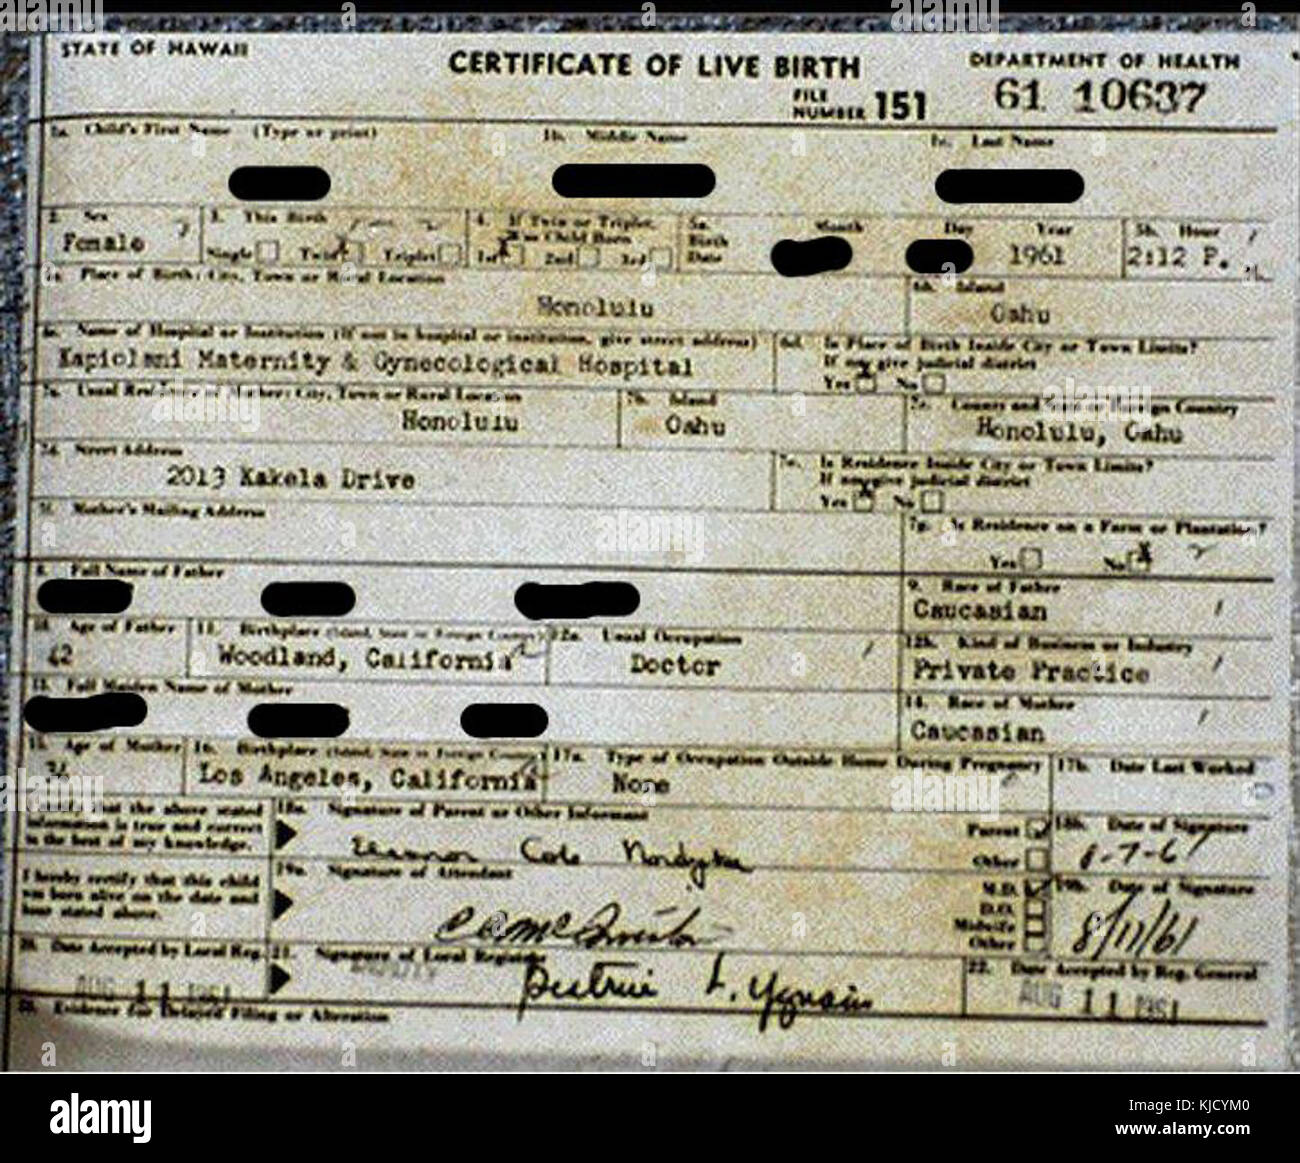 STATE OF HAWAII
CERTIFICATE OF LIVE BIRTH
DEPARTMENT OF HEALTH
FILE NUMBER 151
61 10637
1a. Child's First Name (Type or print)
1b. Middle Name
1c. Last Name
2. Sex
Female
3. This Birth
Single Twin Triplet
4. If Twin or Triplet,
Was Child Born
1st 2nd 3rd
5a. Birth Date
Month
Day
Year
1961
5b. Hour
2:12 P.
Place of Birth: City, Town or Rural Location
Honolulu
6b. Island
Oahu
6c. Name of Hospital or Institution (If not in hospital or institution, give street address)
Kapiolani Maternity & Gynecological Hospital
6d. Is Place of Birth Inside City or Town Limits?
If no, give judicial district
Yes No
7a. Usual Residence of Mother: City, Town or Rural Location
Honolulu
7b. Island
Oahu
7c. County and State or Foreign Country
Honolulu, Oahu
7d. Street Address
2013 Kakela Drive
7e. Is Residence Inside City or Town Limits?
If no, give judicial district
Yes No
7f. Mother's Mailing Address
7g. Is Residence on a Farm or Plantation?
Yes No
8. Full Name of Father
9. Race of Father
Caucasian
10. Age of Father
42
11. Birthplace (Island, State or Foreign Country)
Woodland, California
12a. Usual Occupation
Doctor
12b. Kind of Business or Industry
Private Practice
13. Full Maiden Name of Mother
14. Race of Mother
Caucasian
15. Age of Mother
16. Birthplace (Island, State or Foreign Country)
Los Angeles, California
17a. Type of Occupation Outside Home During Pregnancy
None
17b. Date Last Worked
I certify that the above stated
information is true and correct
to the best of my knowledge.
18a. Signature of Parent or Other Informant
Eleanor Cole Nordyke
Parent
Other
18b. Date of Signature
8-7-61
I hereby certify that this child
was born alive on the date and
hour stated above.
19a. Signature of Attendant
M.D.
D.O.
Midwife
Other
19b. Date of Signature
8/11/61
20. Date Accepted by Local Reg.
AUG 11 1961
21. Signature of Local Registrar
22. Date Accepted by Reg. General
AUG 11 1961
23. Evidence for Delayed Filing or Alteration
alamy
Image ID: KJCYM0
www.alamy.com